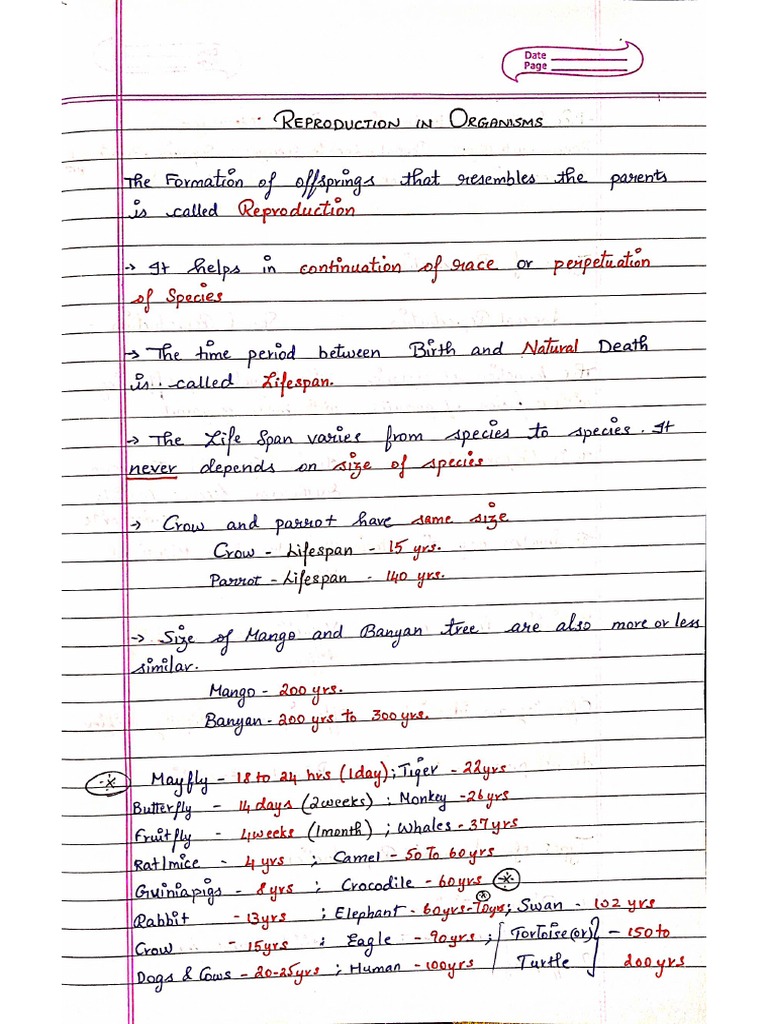 Date
Page
REPRODUCTION IN ORGANISMS
The Formation of offsprings that resembles the parents
is called Reproduction
→ It helps in continuation of race or perpetuation
of Species
→ The time period between Birth and Natural Death
is called Lifespan.
→ The Life Span varies from species to species. It
never depends on size of species
→ Crow and parrot have same size
Crow - Lifespan - 15 yrs.
Parrot - Lifespan - 140 yrs.
→ Size of Mango and Banyan tree are also more or less
similar.
Mango - 200 yrs.
Banyan - 200 yrs to 300 yrs.
* Mayfly - 18 to 24 hrs (1day); Tiger - 22yrs
Butterfly - 14 days (2 weeks) ; Monkey - 26 yrs
Fruitfly - 4 weeks (1 month) ; Whales - 37 yrs
Rat/mice - 4 yrs ; Camel - 50 To 60 yrs
Guiniapigs - 8 yrs ; Crocodile - 60 yrs *
Rabbit - 13yrs ; Elephant - 60yrs-70yrs*; Swan - 102 yrs
Crow - 15yrs ; Eagle - 90yrs ; [Tortoise (or)} - 150 to
Dogs & Cows - 20-25yrs ; Human - 100yrs [Turtle } 200 yrs